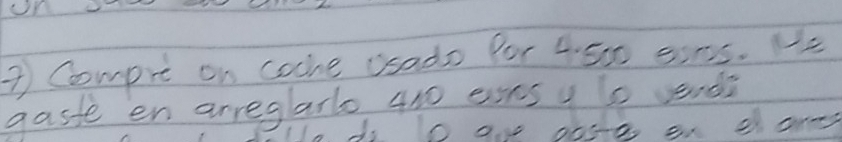 7) Compré un coche usado Por 4.500 euros. Me
gasté en arreglarlo 410 euros y lo vendí
lo que gasté en el